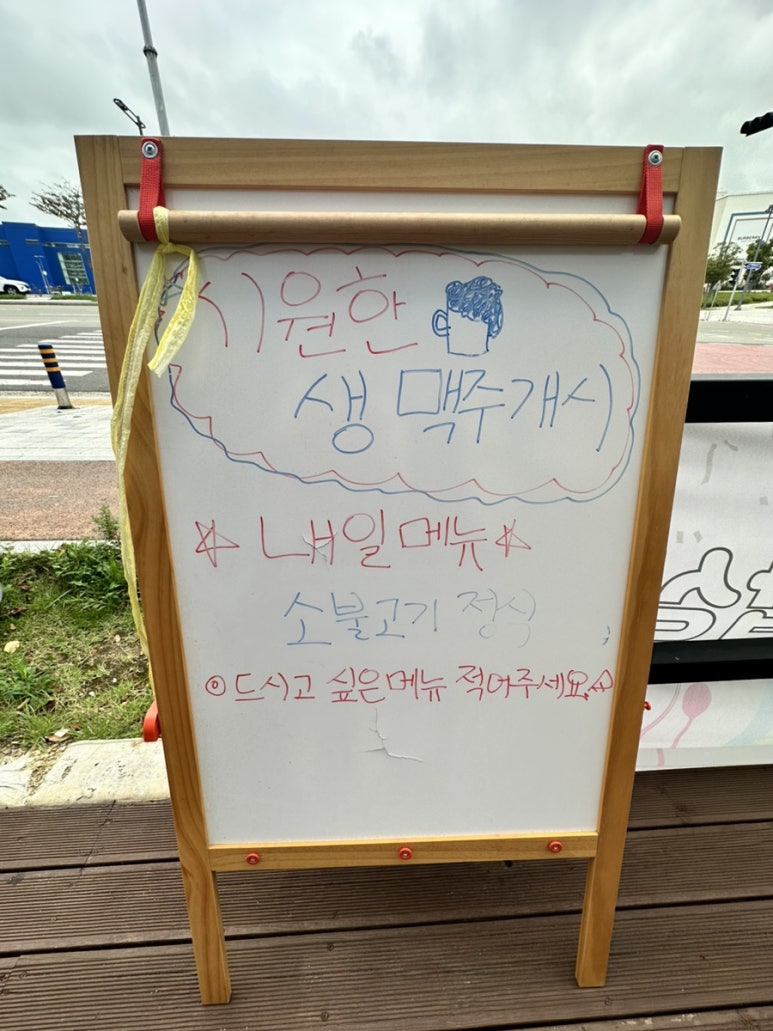 시원한
생 맥주개시
☆ 내일메뉴 ☆
소불고기 정식
⊙ 드시고 싶은메뉴 적어주세요.